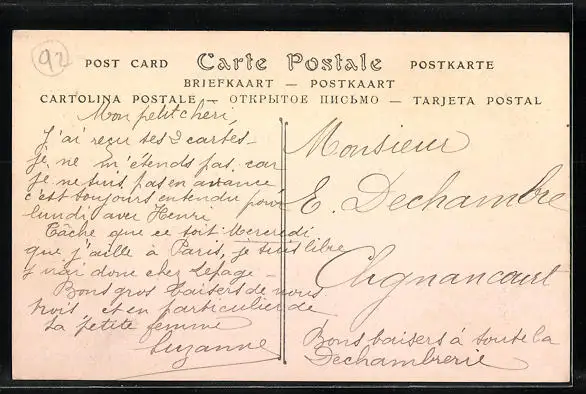 92
POST CARD Carte Postale POSTKARTE
BRIEFKAART — POSTKAART
CARTOLINA POSTALE — ОТКРЫТОЕ ПИСЬМО — TARJETA POSTAL
Mon petit chéri,
J'ai reçu tes 2 cartes –
je ne m'étends pas car
je ne suis pas en avance
c'est toujours entendu pour
lundi avec Henri
Tâche que ce soit Mercredi
que j'aille à Paris, je suis libre
j'irai donc chez Lepage –
Bons gros baisers de nous
trois et en particulier de
ta petite femme
Suzanne
Monsieur
E. Dechambre
Clignancourt
Bons baisers à toute la
Dechambrerie